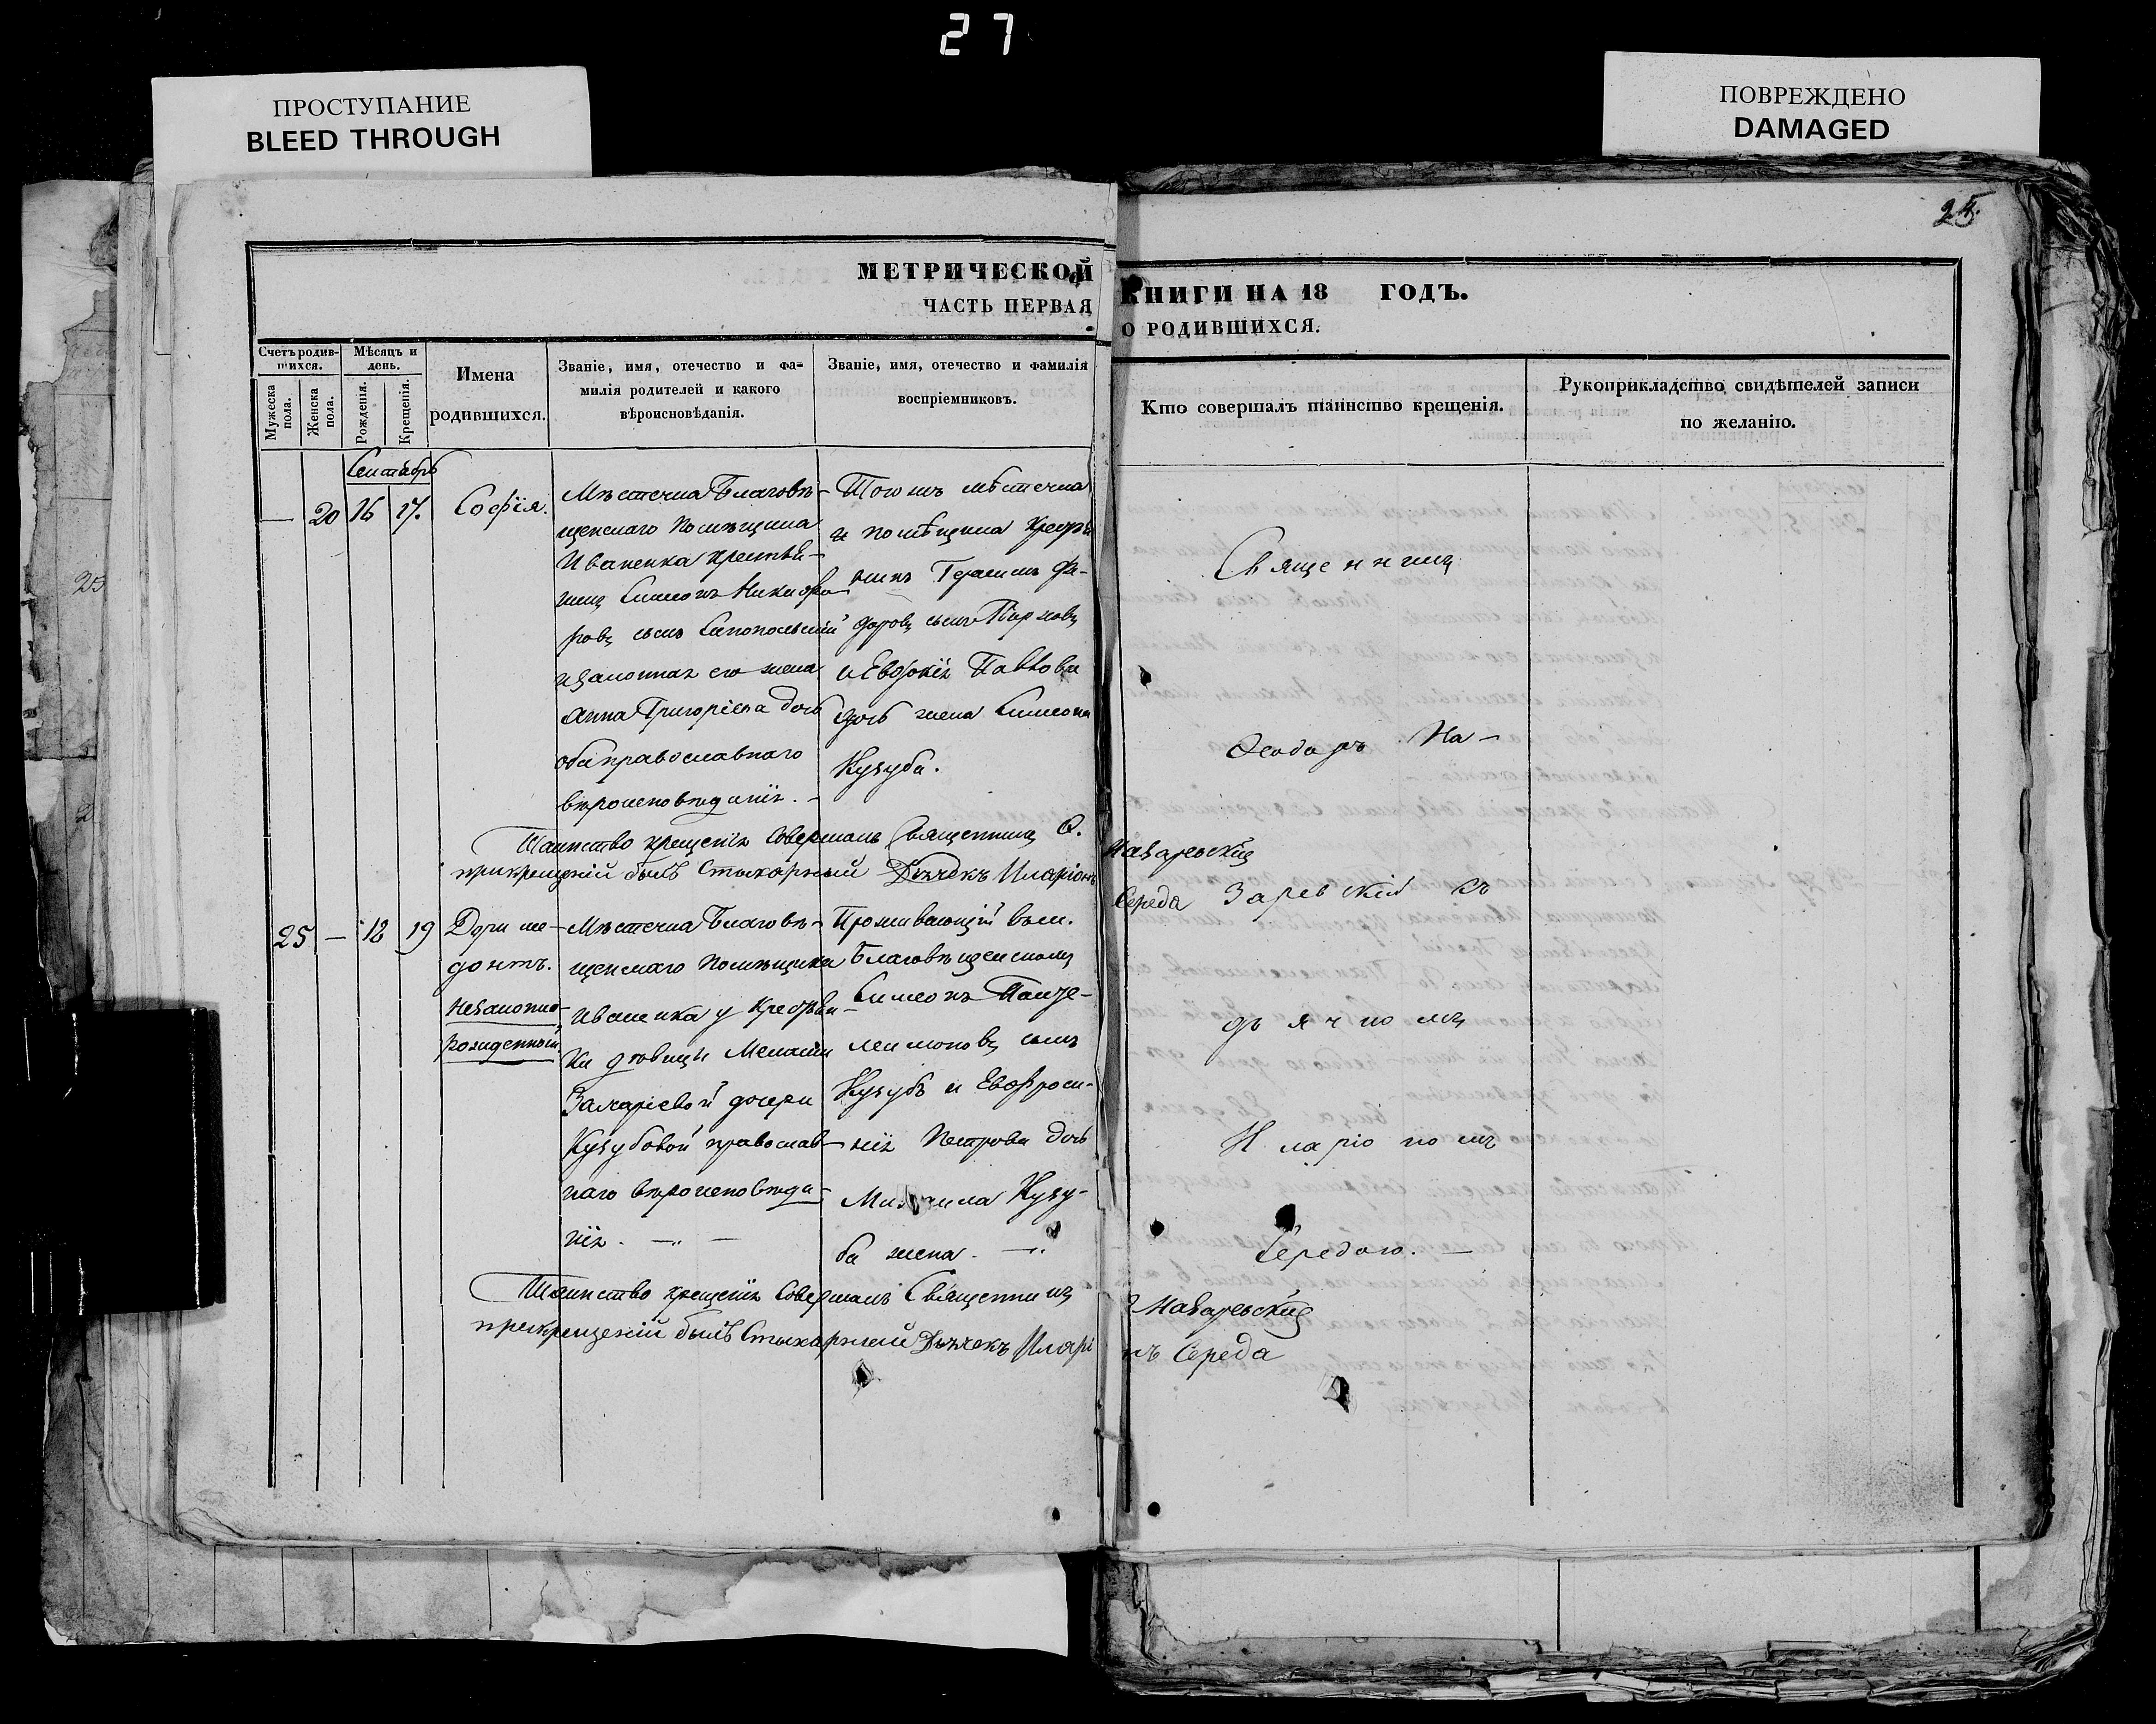 27
ПРОСТУПАНИЕ
BLEED THROUGH
ПОВРЕЖДЕНО
DAMAGED
25.
МЕТРИЧЕСКОЙ КНИГИ НА 18 ГОДЪ.
ЧАСТЬ ПЕРВАЯ О РОДИВШИХСЯ.
Счетъ родив-
шихся.
Мужеска пола.
Женска пола.
Мѣсяцъ и
день.
Рожденія.
Крещенія.
Имена
родившихся.
Званіе, имя, отечество и фа-
милія родителей и какого
вѣроисновѣданія.
Званіе, имя, отечество и фамилія
воспріемниковъ.
Кто совершалъ таинство крещенія.
Рукоприкладство свидѣтелей записи
по желанію.
Сентябрь
— 20 16 17. Софія.
Мѣстечка Благовѣ-
щенскаго помѣщика
Иваненка крестья-
нинъ Симеонъ Никифо-
ровъ сынъ
и законная его жена
Анна Григоріева дочь
оба православнаго
вѣроисповѣданія. -
Того жъ мѣстечка
и помѣщика крестья
нинъ Герасимъ Фе-
доровъ сынъ
и Евдокія Павлова
дочь жена Симеона
Кузуба.
Священникъ
Ѳеодоръ На-
заревскій съ
дьячкомъ
Иларіономъ
Середою. —
Таинство крещенія совершалъ Священникъ Ѳ. Назаревскій
при крещеніи былъ Стихарный Дьячекъ Иларіонъ Середа
25 — 18 19
незаконно-
рожденный
Мѣстечка Благовѣ-
щенскаго помѣщика
Иваненка у крестьян-
ки вдовицы Меланіи
Захаріевой дочери
Кузубовой православ-
наго вѣроисповѣда-
нія. —
Проживающій въ м.
Благовѣщенскомъ
Симеонъ Панте-
леимоновъ сынъ
Кузубъ и Евфроси-
нія Петрова дочь
Михаила Кузу-
ба жена. —
Таинство крещенія совершалъ Священникъ Назаревскій
при крещеніи былъ Стихарный Дьячекъ Иларіонъ Середа